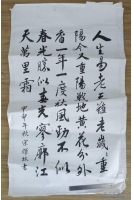 人生易老天難老歲々重
陽今又重陽戰地黄花分外
香一年一度秋風勁不似
春光勝似春光寥廓江
天萬里霜 甲申年秋